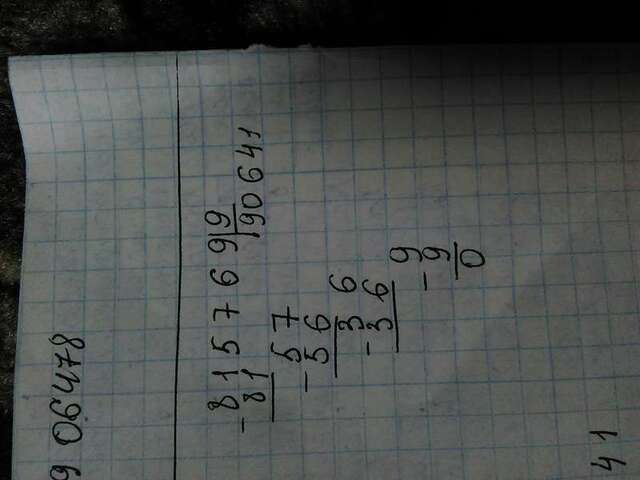 9 06478
- 815769 | 9
81 | 90641
57
- 56
36
- 36
9
- 9
0
41